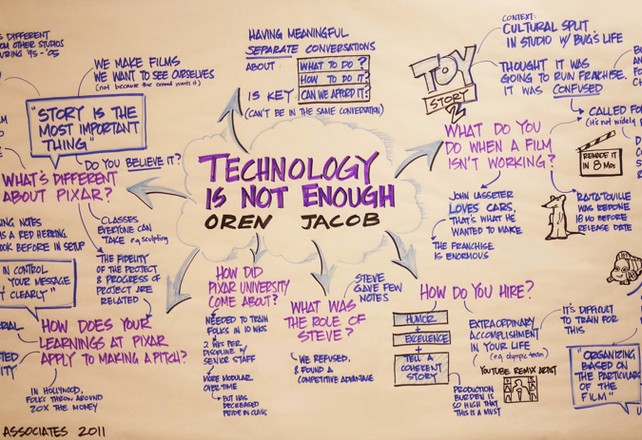 TECHNOLOGY
IS NOT ENOUGH
OREN JACOB
HAVING MEANINGFUL
SEPARATE CONVERSATIONS
ABOUT
WHAT TO DO?
HOW TO DO IT?
CAN WE AFFORD IT?
IS KEY
(CAN'T BE IN THE SAME CONVERSATION)
DIFFERENT
OTHER STUDIOS
'95-'05
WE MAKE FILMS
WE WANT TO SEE OURSELVES
"STORY IS THE
MOST IMPORTANT
THING"
DO YOU BELIEVE IT?
WHAT'S DIFFERENT
ABOUT PIXAR?
CLASSES
EVERYONE CAN
TAKE e.g. sculpting
NOTES
A RED HERRING
BEFORE IN SETUP
THE FIDELITY
OF THE PROJECT
& PROGRESS OF
PROJECT ARE
RELATED
IN CONTROL
YOUR MESSAGE
CLEARLY"
HOW DOES YOUR
LEARNINGS AT PIXAR
APPLY TO MAKING A PITCH?
IN HOLLYWOOD,
FOLKS THROW AROUND
20X THE MONEY
ASSOCIATES 2011
HOW DID
PIXAR UNIVERSITY
COME ABOUT?
NEEDED TO TRAIN
FOLKS IN 10 WKS
2 WKS PER
DISCIPLINE w/
SENIOR STAFF
MORE MODULAR
OVER TIME
BUT HAS
DECREASED
PRIDE IN CLASS
WHAT WAS
THE ROLE OF
STEVE?
STEVE
GAVE FEW
NOTES
WE REFUSED,
& FOUND A
COMPETITIVE ADVANTAGE
TOY
STORY
2
CONTEXT:
CULTURAL SPLIT
IN STUDIO w/ BUG'S LIFE
THOUGHT IT WAS
GOING TO RUIN FRANCHISE.
IT WAS CONFUSED
WHAT DO YOU
DO WHEN A FILM
ISN'T WORKING?
CALLED
(it's not widely
REMADE IT
IN 8 MOS
JOHN LASSETER
LOVES CARS,
THAT'S WHAT HE
WANTED TO MAKE
THE FRANCHISE
IS ENORMOUS
RATATOUILLE
WAS REDONE
18 MO BEFORE
RELEASE DATE
HOW DO YOU HIRE?
HUMOR
+
EXCELLENCE
TELL A
COHERENT
STORY
EXTRAORDINARY
ACCOMPLISHMENT
IN YOUR LIFE
(e.g. olympic team)
YOUTUBE REMIX ARTIST
PRODUCTION
BURDEN IS
SO HIGH THAT
THIS IS A MUST
IT'S DIFFICULT
TO TRAIN FOR
THIS
"ORGANIZING
BASED ON
THE PARTICULARS
OF THE
FILM"